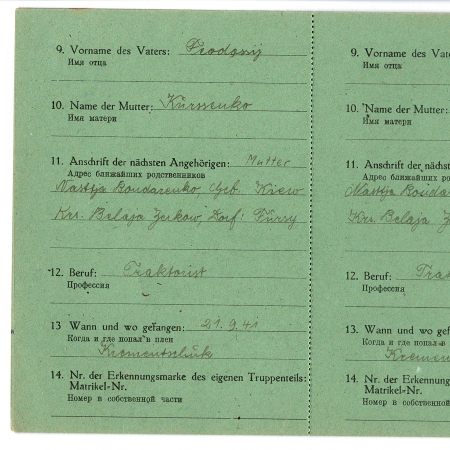 9. Vorname des Vaters: Feodosij
Имя отца
10. Name der Mutter: Kurssenko
Имя матери
11. Anschrift der nächsten Angehörigen: Mutter
Адрес ближайших родственников
Nastja Bondarenko, Geb. Kiew
Krs. Belaja Zerkow, Dorf: Fursy
12. Beruf: Traktorist
Профессия
13 Wann und wo gefangen: 21.9.41
Когда и где попал в плен
Krementschuk
14. Nr. der Erkennungsmarke des eigenen Truppenteils:
Matrikel-Nr.
Номер в собственной части
9. Vorname des Vate
Имя отца
10. Name der Mutter:
Имя матери
11. Anschrift der nächst
Адрес ближайших ро
Nastja
Krs. Belaja Z
12. Beruf: Trak
Профессия
13. Wann und wo gef
Когда и где попал в
Kremen
14. Nr. der Erkennung
Matrikel-Nr.
Номер в собственной